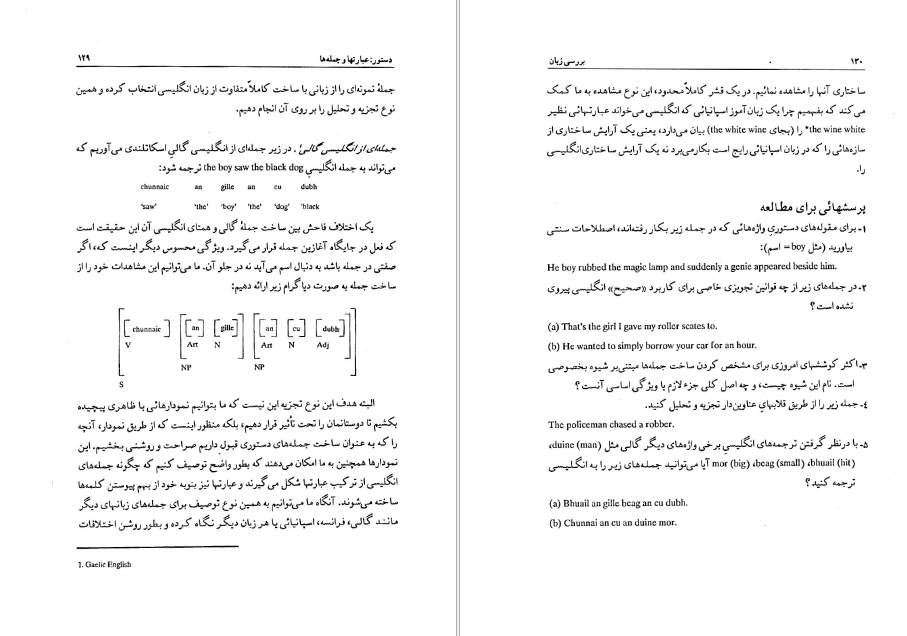 دستور: عبارتها و جمله‌ها ۱۲۹
جملهٔ نمونه‌ای را از زبانی با ساخت کاملاً متفاوت از زبان انگلیسی انتخاب کرده و همین
نوع تجزیه و تحلیل را بر روی آن انجام دهیم.
جمله‌ای از انگلیسی گالی¹. در زیر جمله‌ای از انگلیسی گالیِ اسکاتلندی می‌آوریم که
می‌تواند به جمله انگلیسیِ the boy saw the black dog ترجمه شود:
chunnaic an gille an cu dubh
'saw' 'the' 'boy' 'the' 'dog' 'black
یک اختلاف فاحش بین ساخت جملهٔ گالی و همتای انگلیسی آن این حقیقت است
که فعل در جایگاه آغازین جمله قرار می‌گیرد. ویژگی محسوس دیگر اینست که، اگر
صفتی در جمله باشد به دنبال اسم می‌آید نه در جلو آن. ما می‌توانیم این مشاهدات خود را از
ساخت جمله به صورت دیاگرام زیر ارائه دهیم:
[ [chunnaic] [ [an] [gille] ] [ [an] [cu] [dubh] ] ]
V Art N Art N Adj
NP NP
S
البته هدف این نوع تجزیه این نیست که ما بتوانیم نمودارهائی با ظاهری پیچیده
بکشیم تا دوستانمان را تحت تأثیر قرار دهیم، بلکه منظور اینست که از طریق نمودار، آنچه
را که به عنوان ساخت جمله‌های دستوری قبول داریم صراحت و روشنی بخشیم. این
نمودارها همچنین به ما امکان می‌دهند که بطور واضح توصیف کنیم که چگونه جمله‌های
انگلیسی از ترکیب عبارتها شکل می‌گیرند و عبارتها نیز بنوبه خود از بهم پیوستن کلمه‌ها
ساخته می‌شوند. آنگاه ما می‌توانیم به همین نوع توصیف برای جمله‌های زبانهای دیگر
مانند گالی، فرانسه، اسپانیائی یا هر زبان دیگر نگاه کرده و بطور روشن اختلافات
1. Gaelic English
۱۳۰ بررسی زبان
ساختاری آنها را مشاهده نمائیم. در یک قشر کاملاً محدود، این نوع مشاهده به ما کمک
می‌کند که بفهمیم چرا یک زبان‌آموز اسپانیائی که انگلیسی می‌خواند عبارتهائی نظیر
the wine white* را (بجای the white wine) بیان می‌دارد، یعنی یک آرایش ساختاری از
سازه‌هائی را که در زبان اسپانیائی رایج است بکار می‌برد نه یک آرایش ساختاری انگلیسی
را.
پرسشهائی برای مطالعه
۱- برای مقوله‌های دستوریِ واژه‌هائی که در جمله زیر بکار رفته‌اند، اصطلاحات سنتی
بیاورید (مثل boy= اسم):
He boy rubbed the magic lamp and suddenly a genie appeared beside him.
۲- در جمله‌های زیر از چه قوانین تجویزی خاصی برای کاربرد «صحیح» انگلیسی پیروی
نشده است؟
(a) That's the girl I gave my roller scates to.
(b) He wanted to simply borrow your car for an hour.
۳- اکثر کوششهای امروزی برای مشخص کردن ساخت جمله‌ها مبتنی بر شیوه بخصوصی
است. نام این شیوه چیست، و چه اصل کلی جزء لازم یا ویژگی اساسی آنست؟
۴- جمله زیر را از طریق قلابهای عناوین‌دار تجزیه و تحلیل کنید.
The policeman chased a robber.
۵- با درنظر گرفتن ترجمه‌های انگلیسیِ برخی واژه‌های دیگر گالی مثل duine (man)،
mor (big) ،beag (small) ،bhuail (hit) آیا می‌توانید جمله‌های زیر را به انگلیسی
ترجمه کنید؟
(a) Bhuail an gille beag an cu dubh.
(b) Chunnai an cu an duine mor.